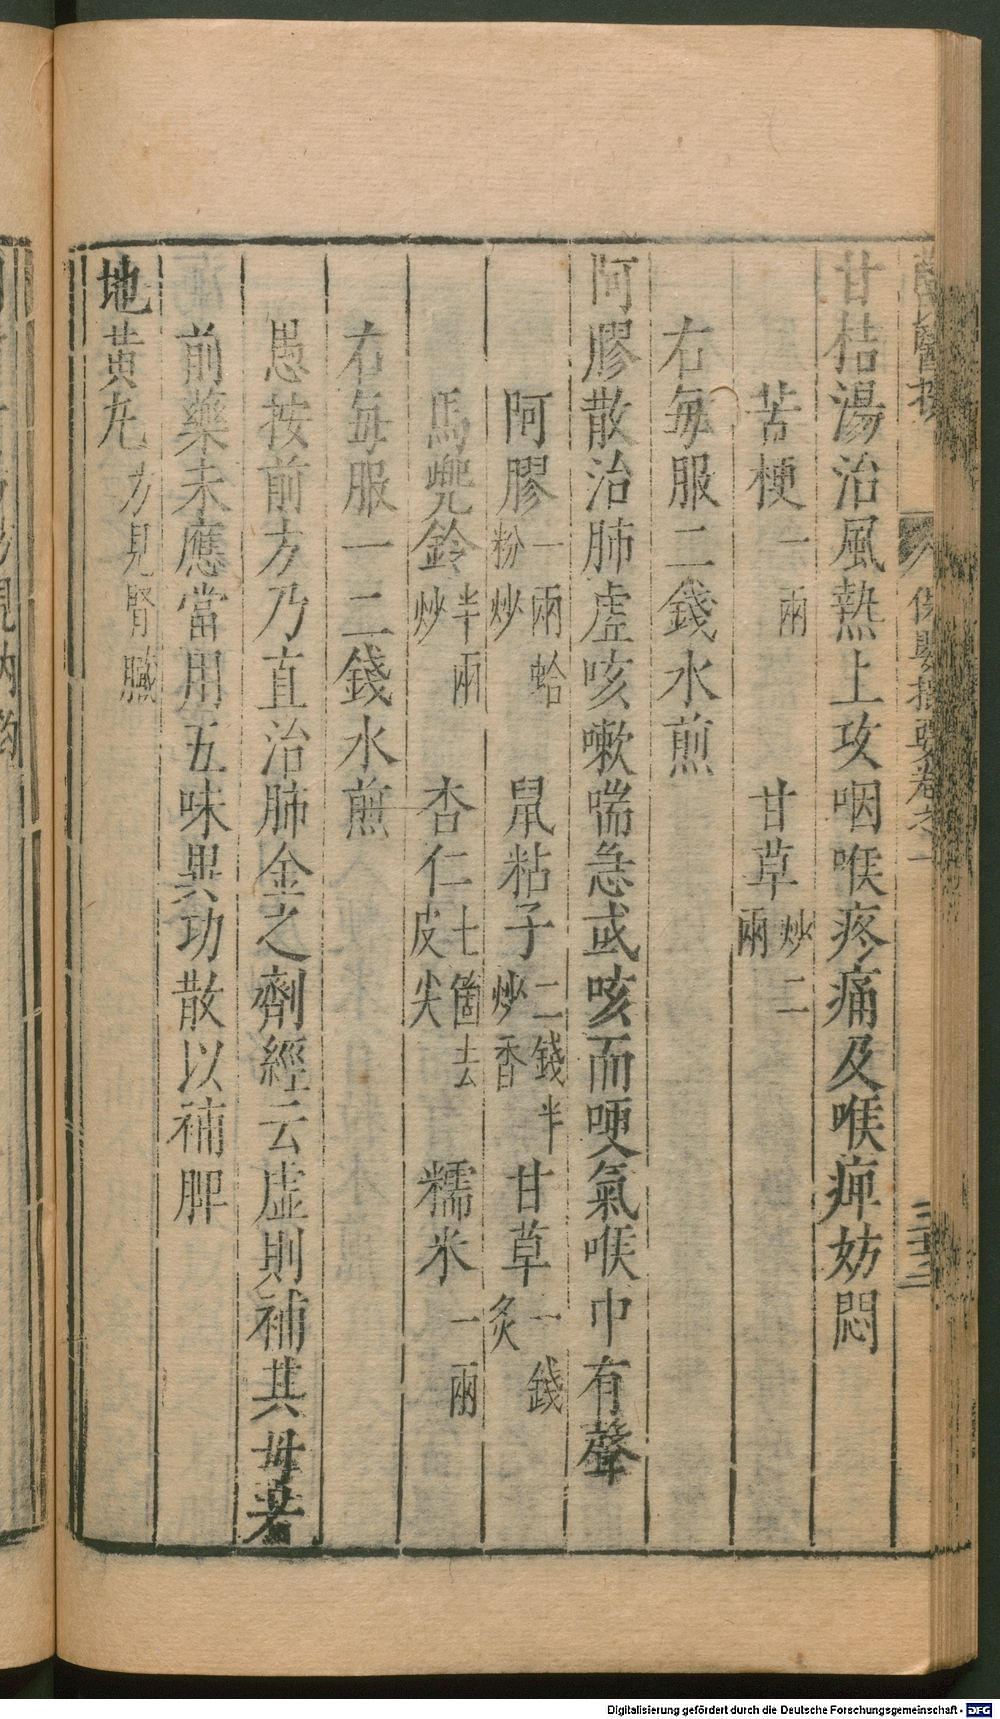 保嬰撮要卷之一
甘桔湯治風熱上攻咽喉疼痛及喉痺妨悶
苦梗一兩 甘草炒二兩
右每服二錢水煎
阿膠散治肺虛咳嗽喘急或咳而哽氣喉中有聲
阿膠一兩蛤粉炒 鼠粘子二錢半炒香 甘草一錢炙
馬兜鈴半兩炒 杏仁七箇去皮尖 糯米一兩
右每服一二錢水煎
愚按前方乃直治肺金之劑經云虛則補其母若
前藥未應當用五味異功散以補脾
地黃丸方見腎臟
Digitalisierung gefördert durch die Deutsche Forschungsgemeinschaft - DFG